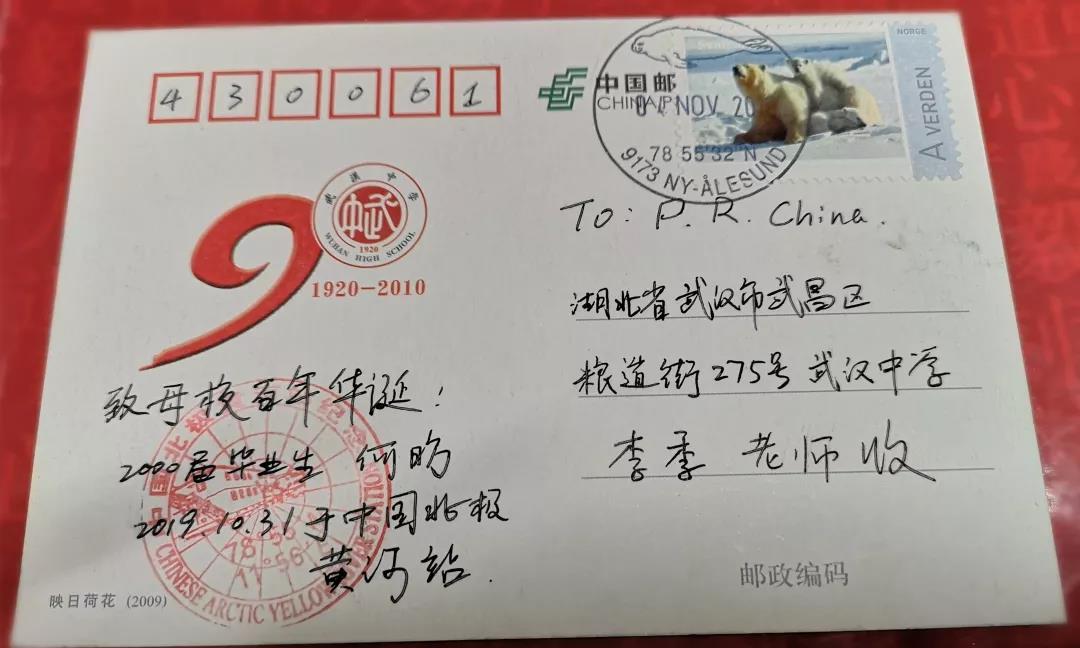 430061
中国邮
CHINA P
NORGE
A VERDEN
04 NOV 20
78 55'32"N
9173 NY-ÅLESUND
武漢中学
中武
1920
WUHAN HIGH SCHOOL
1920-2010
To: P. R. China.
湖北省武汉市武昌区
粮道街275号 武汉中学
李季 老师 收
致母校百年华诞：
2000届毕业生 何昉
2019.10.31于中国北极
黄河站.
中國北极
纪念
CHINESE ARCTIC YELLOW RIVER STATION
邮政编码
映日荷花 (2009)